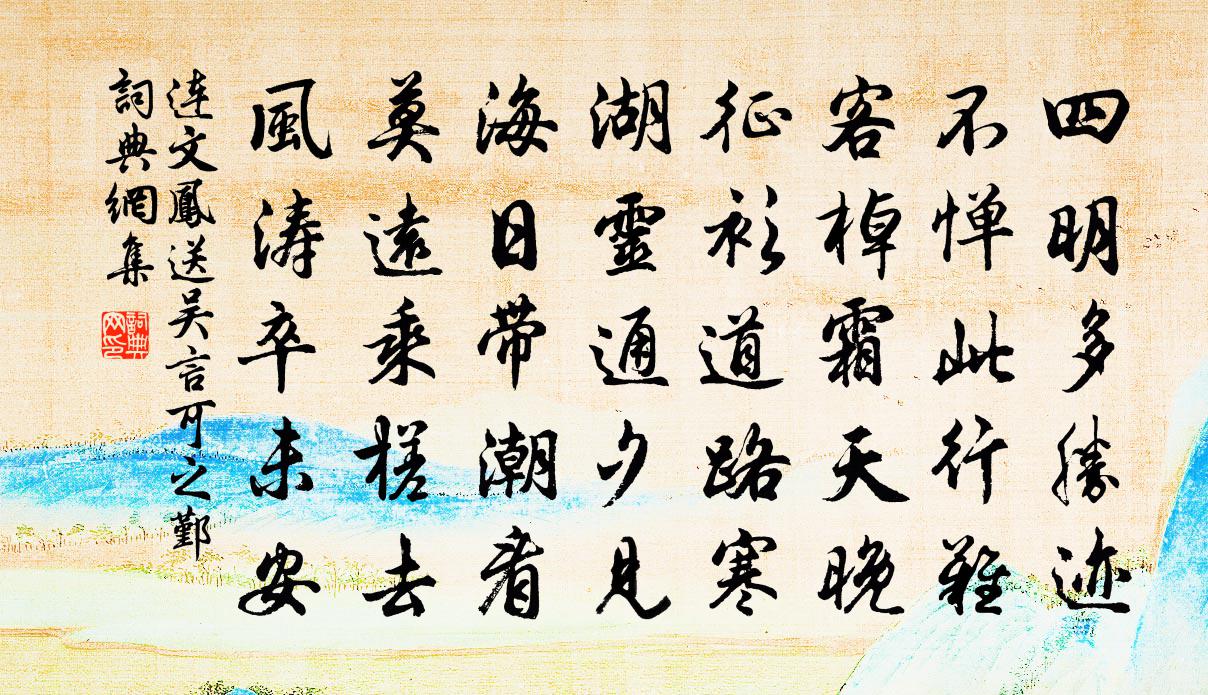 四明多勝迹
不惮此行難
客棹霜天晚
征衫道路寒
湖靈通夕見
海日带潮看
莫遠乘槎去
風涛卒未安
连文鳳送吴言可之鄞
詞典網集
詞典网印